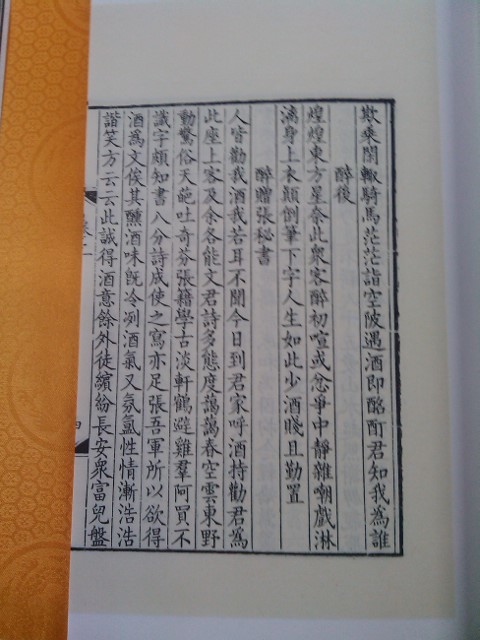 欺乘閑輙騎馬茫茫詣空陂遇酒即酩酊君知我為誰
醉後
煌煌東方星奈此衆客醉初喧或忿爭中靜雜嘲戲淋
漓身上衣顛倒筆下字人生如此少酒賤且勤置
醉贈張秘書
人皆勸我酒我若耳不聞今日到君家呼酒持勸君為
此座上客及余各能文君詩多態度藹藹春空雲東野
動驚俗天葩吐奇芬張籍學古淡軒鶴避雞羣阿買不
識字頗知書八分詩成使之寫亦足張吾軍所以欲得
酒為文俟其醺酒味旣冷冽酒氣又氛氳性情漸浩浩
諧笑方云云此誠得酒意餘外徒繽紛長安衆富兒盤